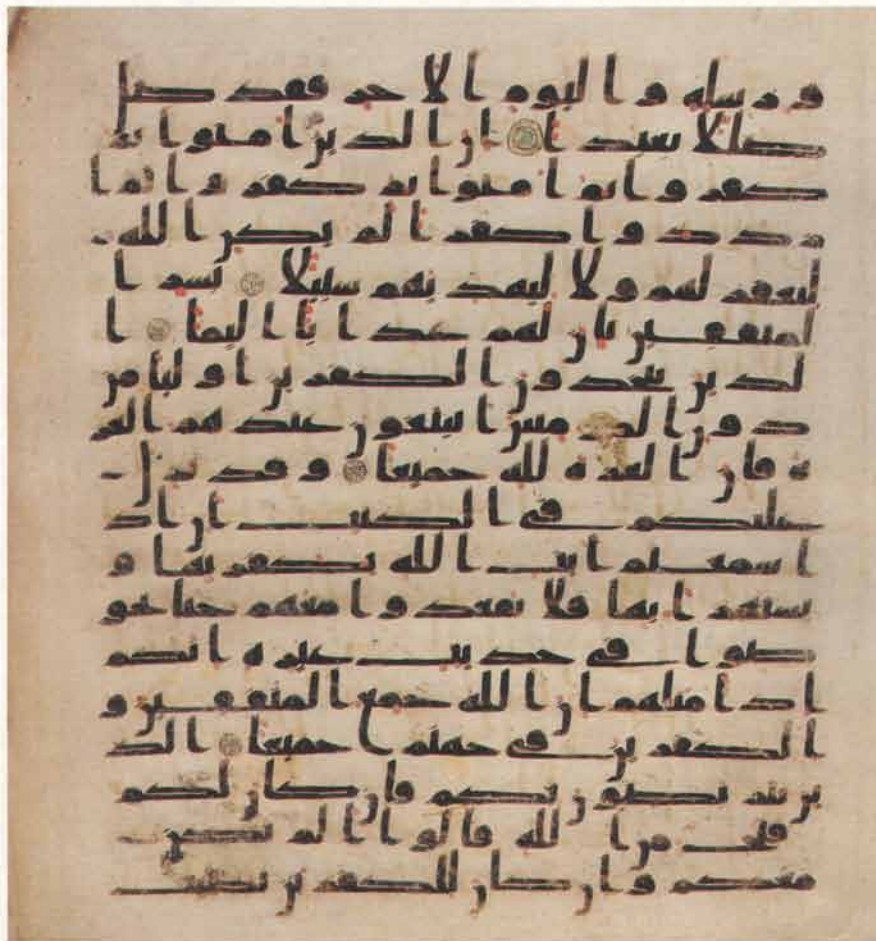 ورسله واليوم الاخر فقد ضل
ضللا بعيدا ان الذين امنوا ثم
كفروا ثم امنوا ثم كفروا ثم ا
زدادوا كفرا لم يكن الله
ليغفر لهم ولا ليهديهم سبيلا بشر ا
لمنفقين بان لهم عذابا اليما ا
لذين يتخذون الكفرين اوليا من
دون المومنين ايبتغون عندهم العز
ة فان العزة لله جميعا وقد نزل
عليكم في الكتب ان اذ
ا سمعتم ايت الله يكفر بها و
يستهزا بها فلا تقعدوا معهم حتا يخو
ضوا في حديث غيره انكم
اذا مثلهم ان الله جمع المنفقين و
الكفرين في جهنم جميعا الذ
ين يتربصون بكم فان كان لكم
فتح من الله قالوا الم نكن
معكم وان كان للكفرين نصيب